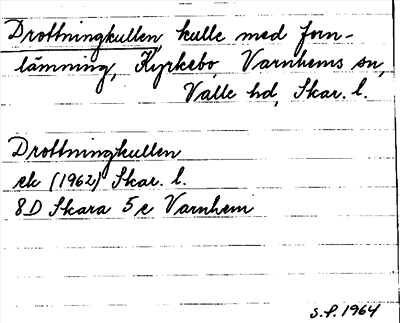 Drottningkullen, kulle med forn-
lämning, Kyrkebo, Varnhems sn,
Valle hd, Skar. l.
Drottningkullen
ek (1962) Skar. l.
8D Skara 5e Varnhem
S.P. 1964